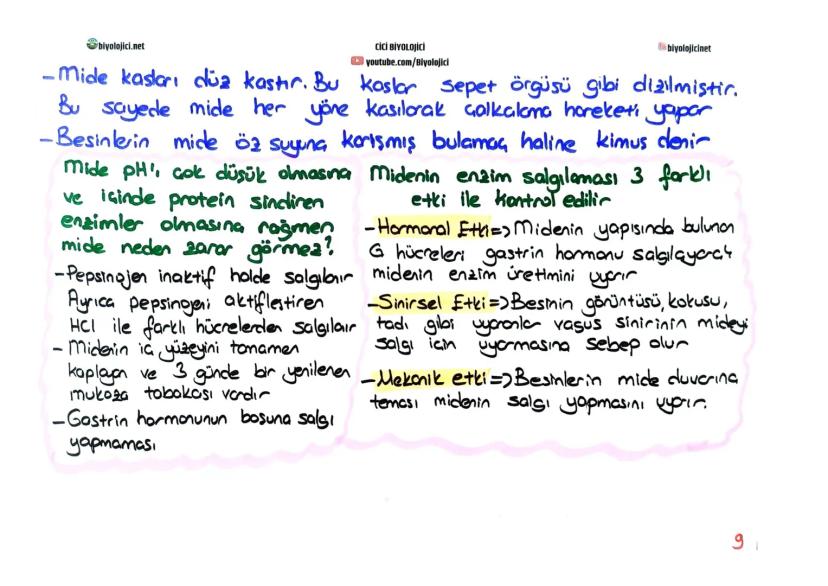 biyolojici.net
CİCİ BİYOLOJİCİ
biyolojicinet
youtube.com/Biyolojici
- Mide kasları düz kastır. Bu kaslar sepet örgüsü gibi dizilmiştir.
Bu sayede mide her yöne kasılarak çalkalama hareketi yapar
- Besinlerin mide öz suyuna karışmış bulamaç haline kimus denir
Mide pH'ı çok düşük olmasına
ve içinde protein sindiren
enzimler olmasına rağmen
mide neden zarar görmez?
- Pepsinojen inaktif halde salgılanır
Ayrıca pepsinojeni aktifleştiren
HCl ile farklı hücrelerden salgılanır
- Midenin iç yüzeyini tamamen
kaplayan ve 3 günde bir yenilenen
mukoza tabakası vardır
- Gastrin hormonunun boşuna salgı
yapmaması
Midenin enzim salgılaması 3 farklı
etki ile kontrol edilir
- Hormonal Etki => Midenin yapısında bulunan
G hücreleri gastrin hormonu salgılayarak
midenin enzim üretimini uyarır
- Sinirsel Etki => Besinin görüntüsü, kokusu,
tadı gibi uyaranlar vagus sinirinin mideyi
salgı için uyarmasına sebep olur
- Mekanik etki => Besinlerin mide duvarına
teması midenin salgı yapmasını uyarır.
9